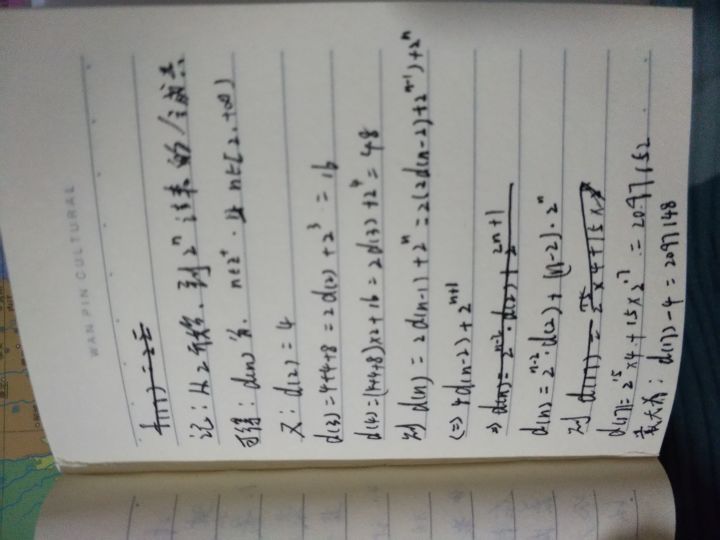 WAN PIN CULTURAL
记：从2开始，到2ⁿ 结束的
可得：d(n)为. n∈Z⁺. 且 n∈[2,+∞)
又：d(2)=4
d(3)=4+4+8=2d(2)+2³=16
d(4)=(4+4+8)×2+16=2d(3)+2⁴=48
则 d(n)=2d(n-1)+2ⁿ=2(2d(n-2)+2ⁿ⁻¹)+2ⁿ
(=) 4d(n-2)+2ⁿ⁺¹
⇒ d(n)=2ⁿ⁻²·d(2)+2²ⁿ⁺¹
d(n)=2ⁿ⁻²·d(2)+(n-2)·2ⁿ
则 d(17)=2¹⁵×4+15×2
d(17)=2¹⁵×4+15×2¹⁷=2097152
最大为：d(17)-4=2097148